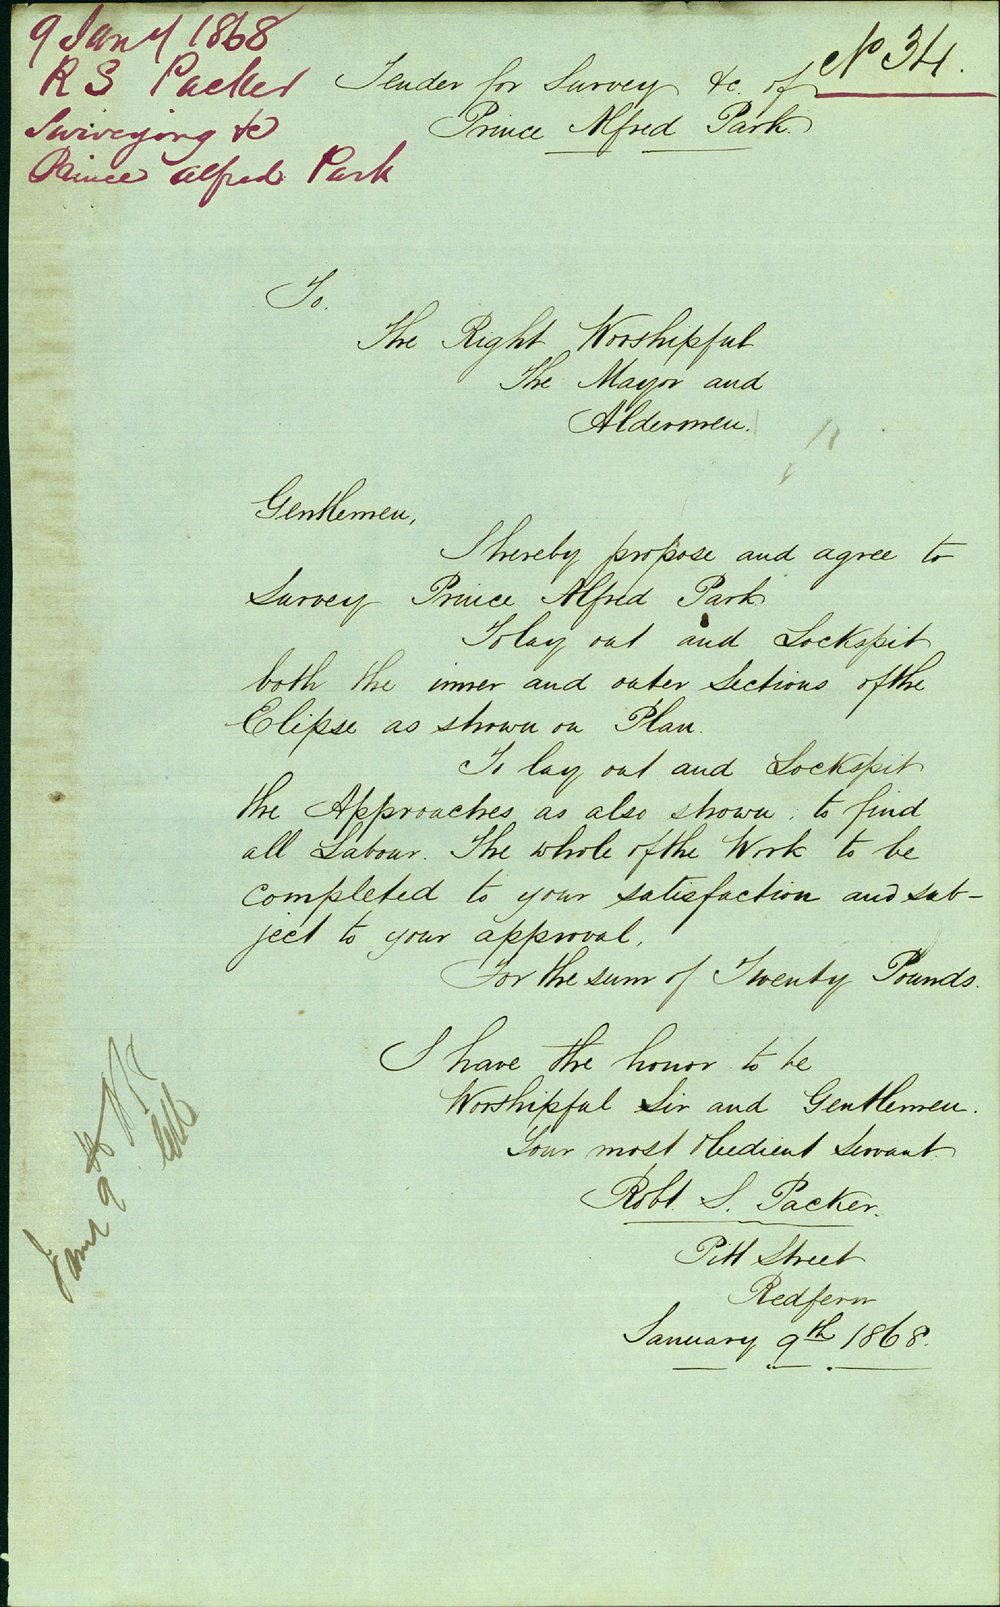 9 Jany 1868
R S Packer
Surveying &c
Prince Alfred Park
No 34.
Tender for Survey &c. of
Prince Alfred Park.
To.
The Right Worshipful
The Mayor and
Aldermen.
Gentlemen,
I hereby propose and agree to
Survey Prince Alfred Park
To lay out and Lockspit
both the inner and outer Sections of the
Elipse as shown on Plan.
To lay out and Lockspit
the Approaches as also shown. to find
all Labour. The whole of the Work to be
completed to your satisfaction and sub-
ject to your approval.
For the sum of Twenty Pounds.
I have the honor to be
Worshipful Sir and Gentlemen.
Your most Obedient Servant
Robt. S. Packer.
Pitt Street
Redfern
January 9th 1868.
Jany 9